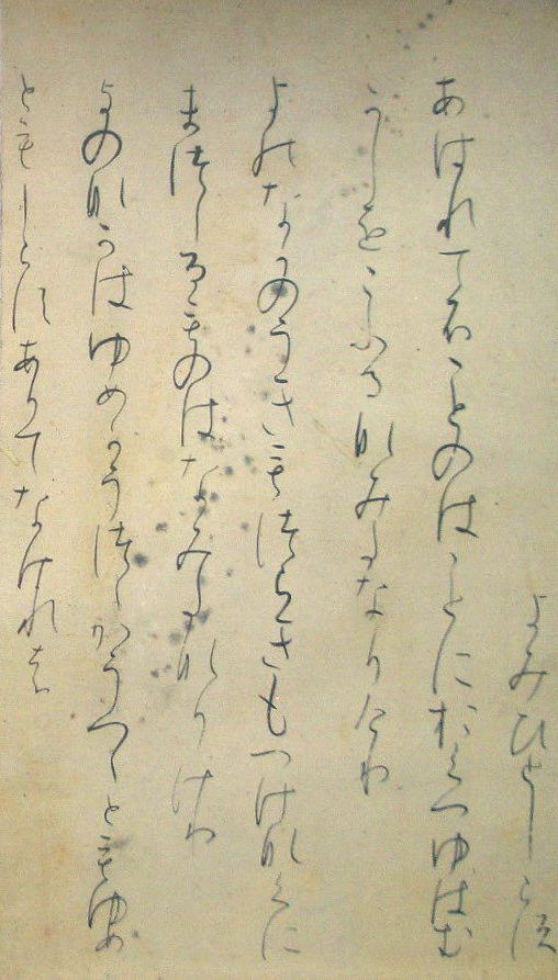 よみひとしらす
あはれてふことのはことにおくつゆはむ
かしをこふるなみたなりけり
よのなかのうきもつらきもつけなくに
まつしるものはなみたなりけり
よのなかはゆめかうつゝかうつゝともゆめ
ともしらすありてなけれは